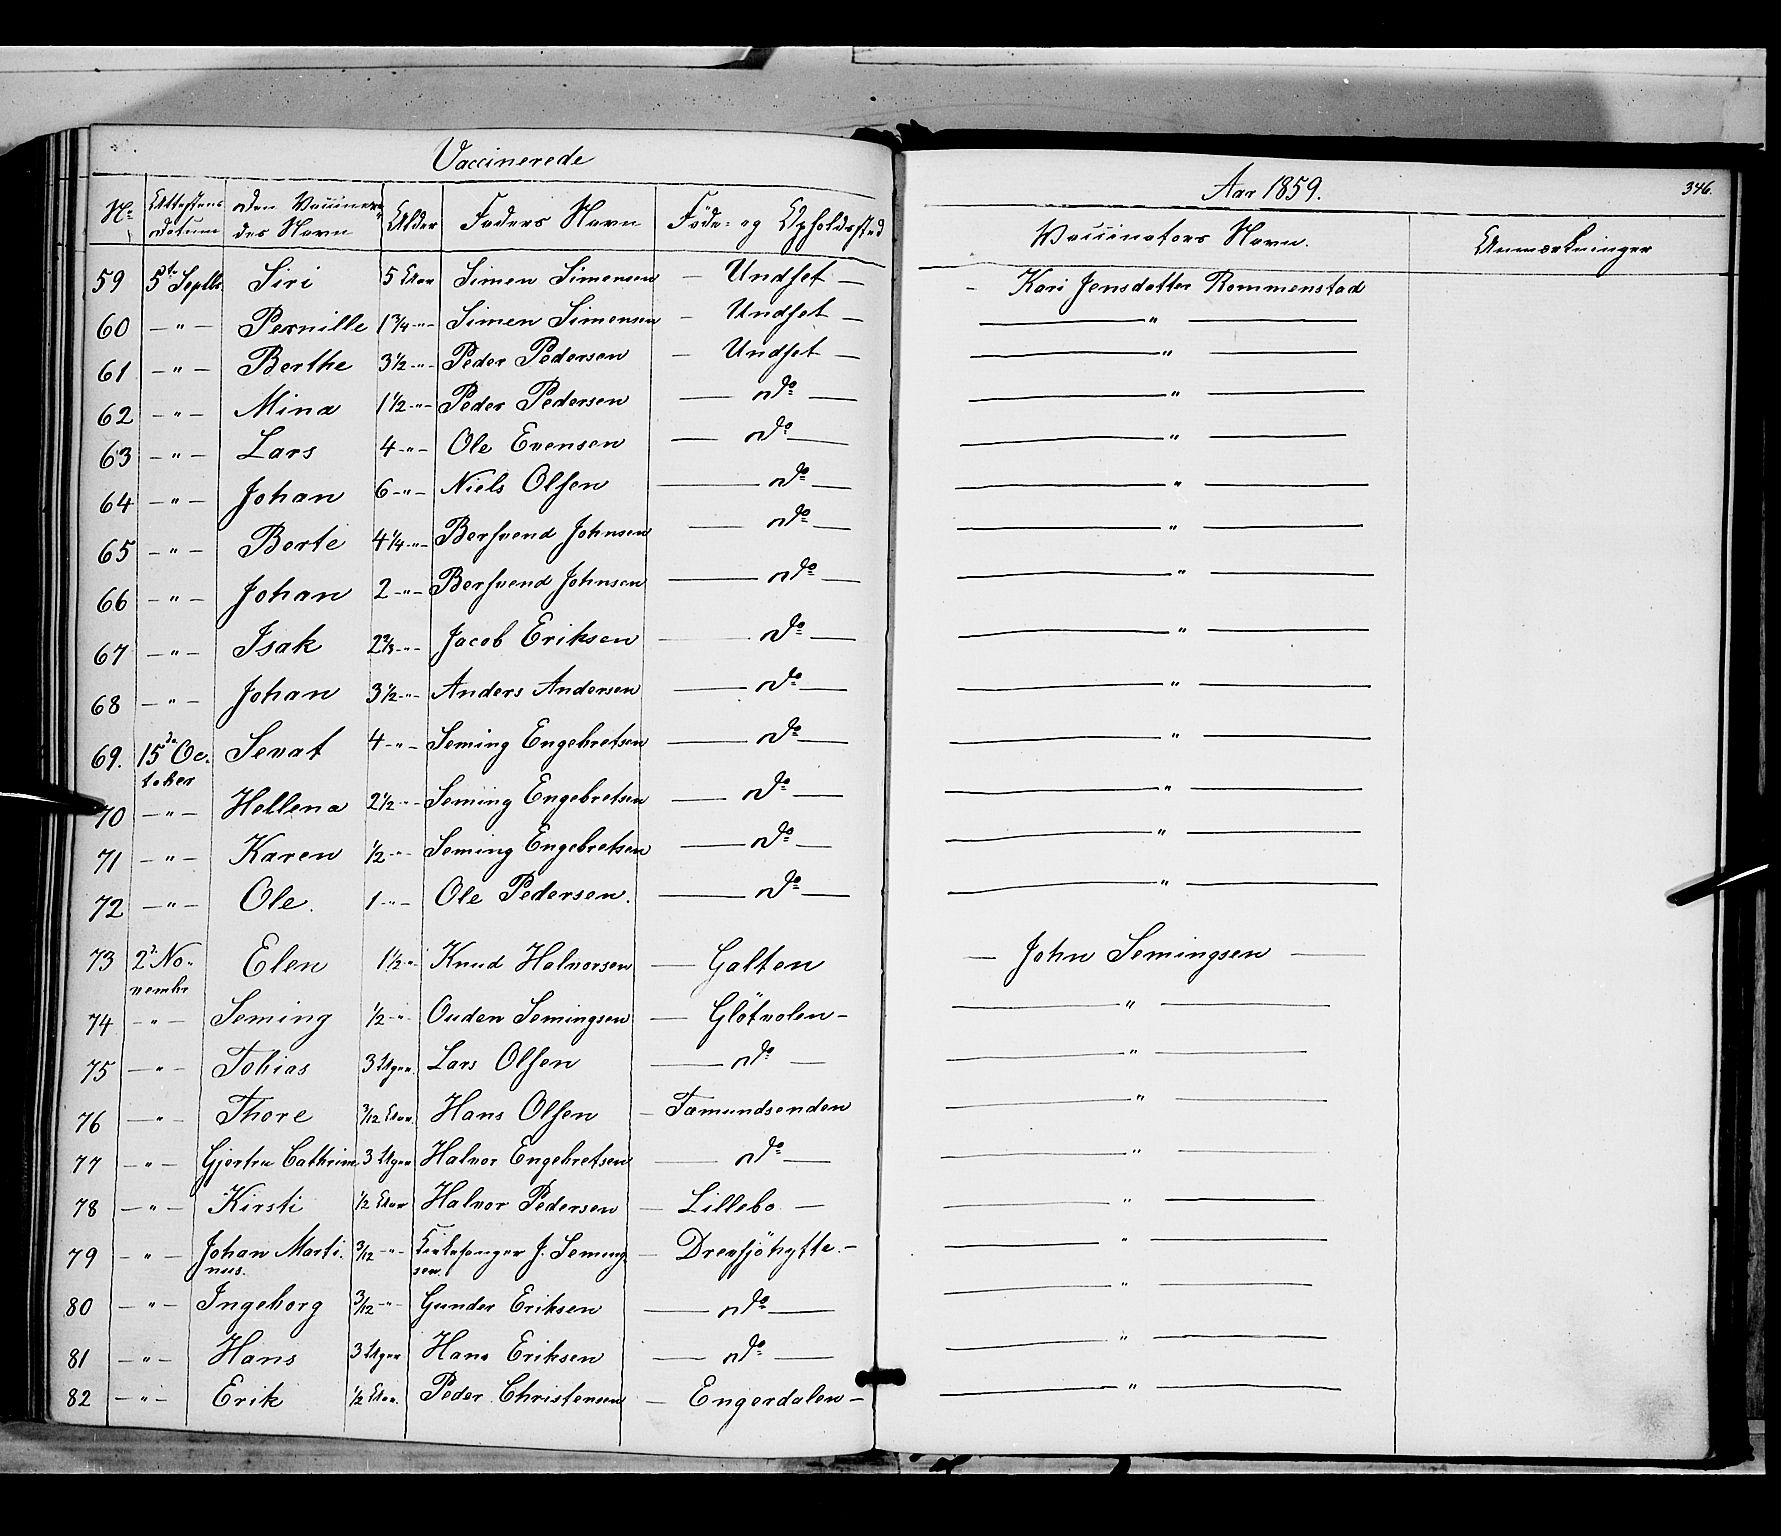 Vaccinerede
Aar 1859.
346.
No. Attestens Datum den Vaccinere- des Navn Alder Faders Navn Føde- og Opholdssted Vaccinators Navn. Anmærkninger
59 5te Septbr. Siri 5 Aar Simen Simensen — Undset — - Kari Jensdatter Rommenstad
60 — " — Pernille 1 3/4 -"- Simen Simensen - Undset — — " —
61 — " — Berthe 3 1/2 -"- Peder Pedersen - Undset — — " —
62 — " — Mina 1 1/2 -"- Peder Pedersen — do — " —
63 — " — Lars 4 -"- Ole Evensen — do — — " —
64 — " — Johan 6 -"- Niels Olsen — do — — " —
65 — " — Berte 4 1/4 -"- Bersvend Johnsen — do — — " —
66 — " — Johan 2 -"- Bersvend Johnsen — do — — " —
67 — " — Isak 2 2/3 -"- Jacob Eriksen — do — — " —
68 — " — Johan 3 1/2 -"- Anders Andersen — do — — " —
69. 15de Oc- tober Senat 4 -"- Seming Engebretsen — do — — " —
70 — " — Hellena 2 1/2 -"- Seming Engebretsen — do — — " —
71 — " — Karen 1/2 -"- Seming Engebretsen — do — — " —
72 — " — Ole. 1 -"- Ole Pedersen. — do — — " —
73 2. No- vembr Elen 1 1/2 -"- Knud Halvorsen — Galten — John Semingsen —
74 — " — Seming 1/2 -"- Ouden Semingsen — Glötvolen — — " —
75 — " — Tobias 3 Uger Lars Olsen — do — — " —
76 — " — Thore 3/12 Aar Hans Olsen — Fæmundsenden — " —
77 — " — Gjertru Cathrine 3 Uger Halvor Engebretsen — do — — " —
78 — " — Kirsti 1/2 Aar Halvor Pedersen — Lillebo. — — " —
79 — " — Johan Marti- nus. 3/12 -"- Kirkesanger J. Seming- sen. — Drevsjöhytte. — — " —
80 — " — Ingeborg 3/12 -"- Gunder Eriksen — do — — " —
81 — " — Hans 3 Uger Hans Eriksen — do — — " —
82 — " — Erik 1/2 Aar. Peder Christensen — Engerdalen — — " —